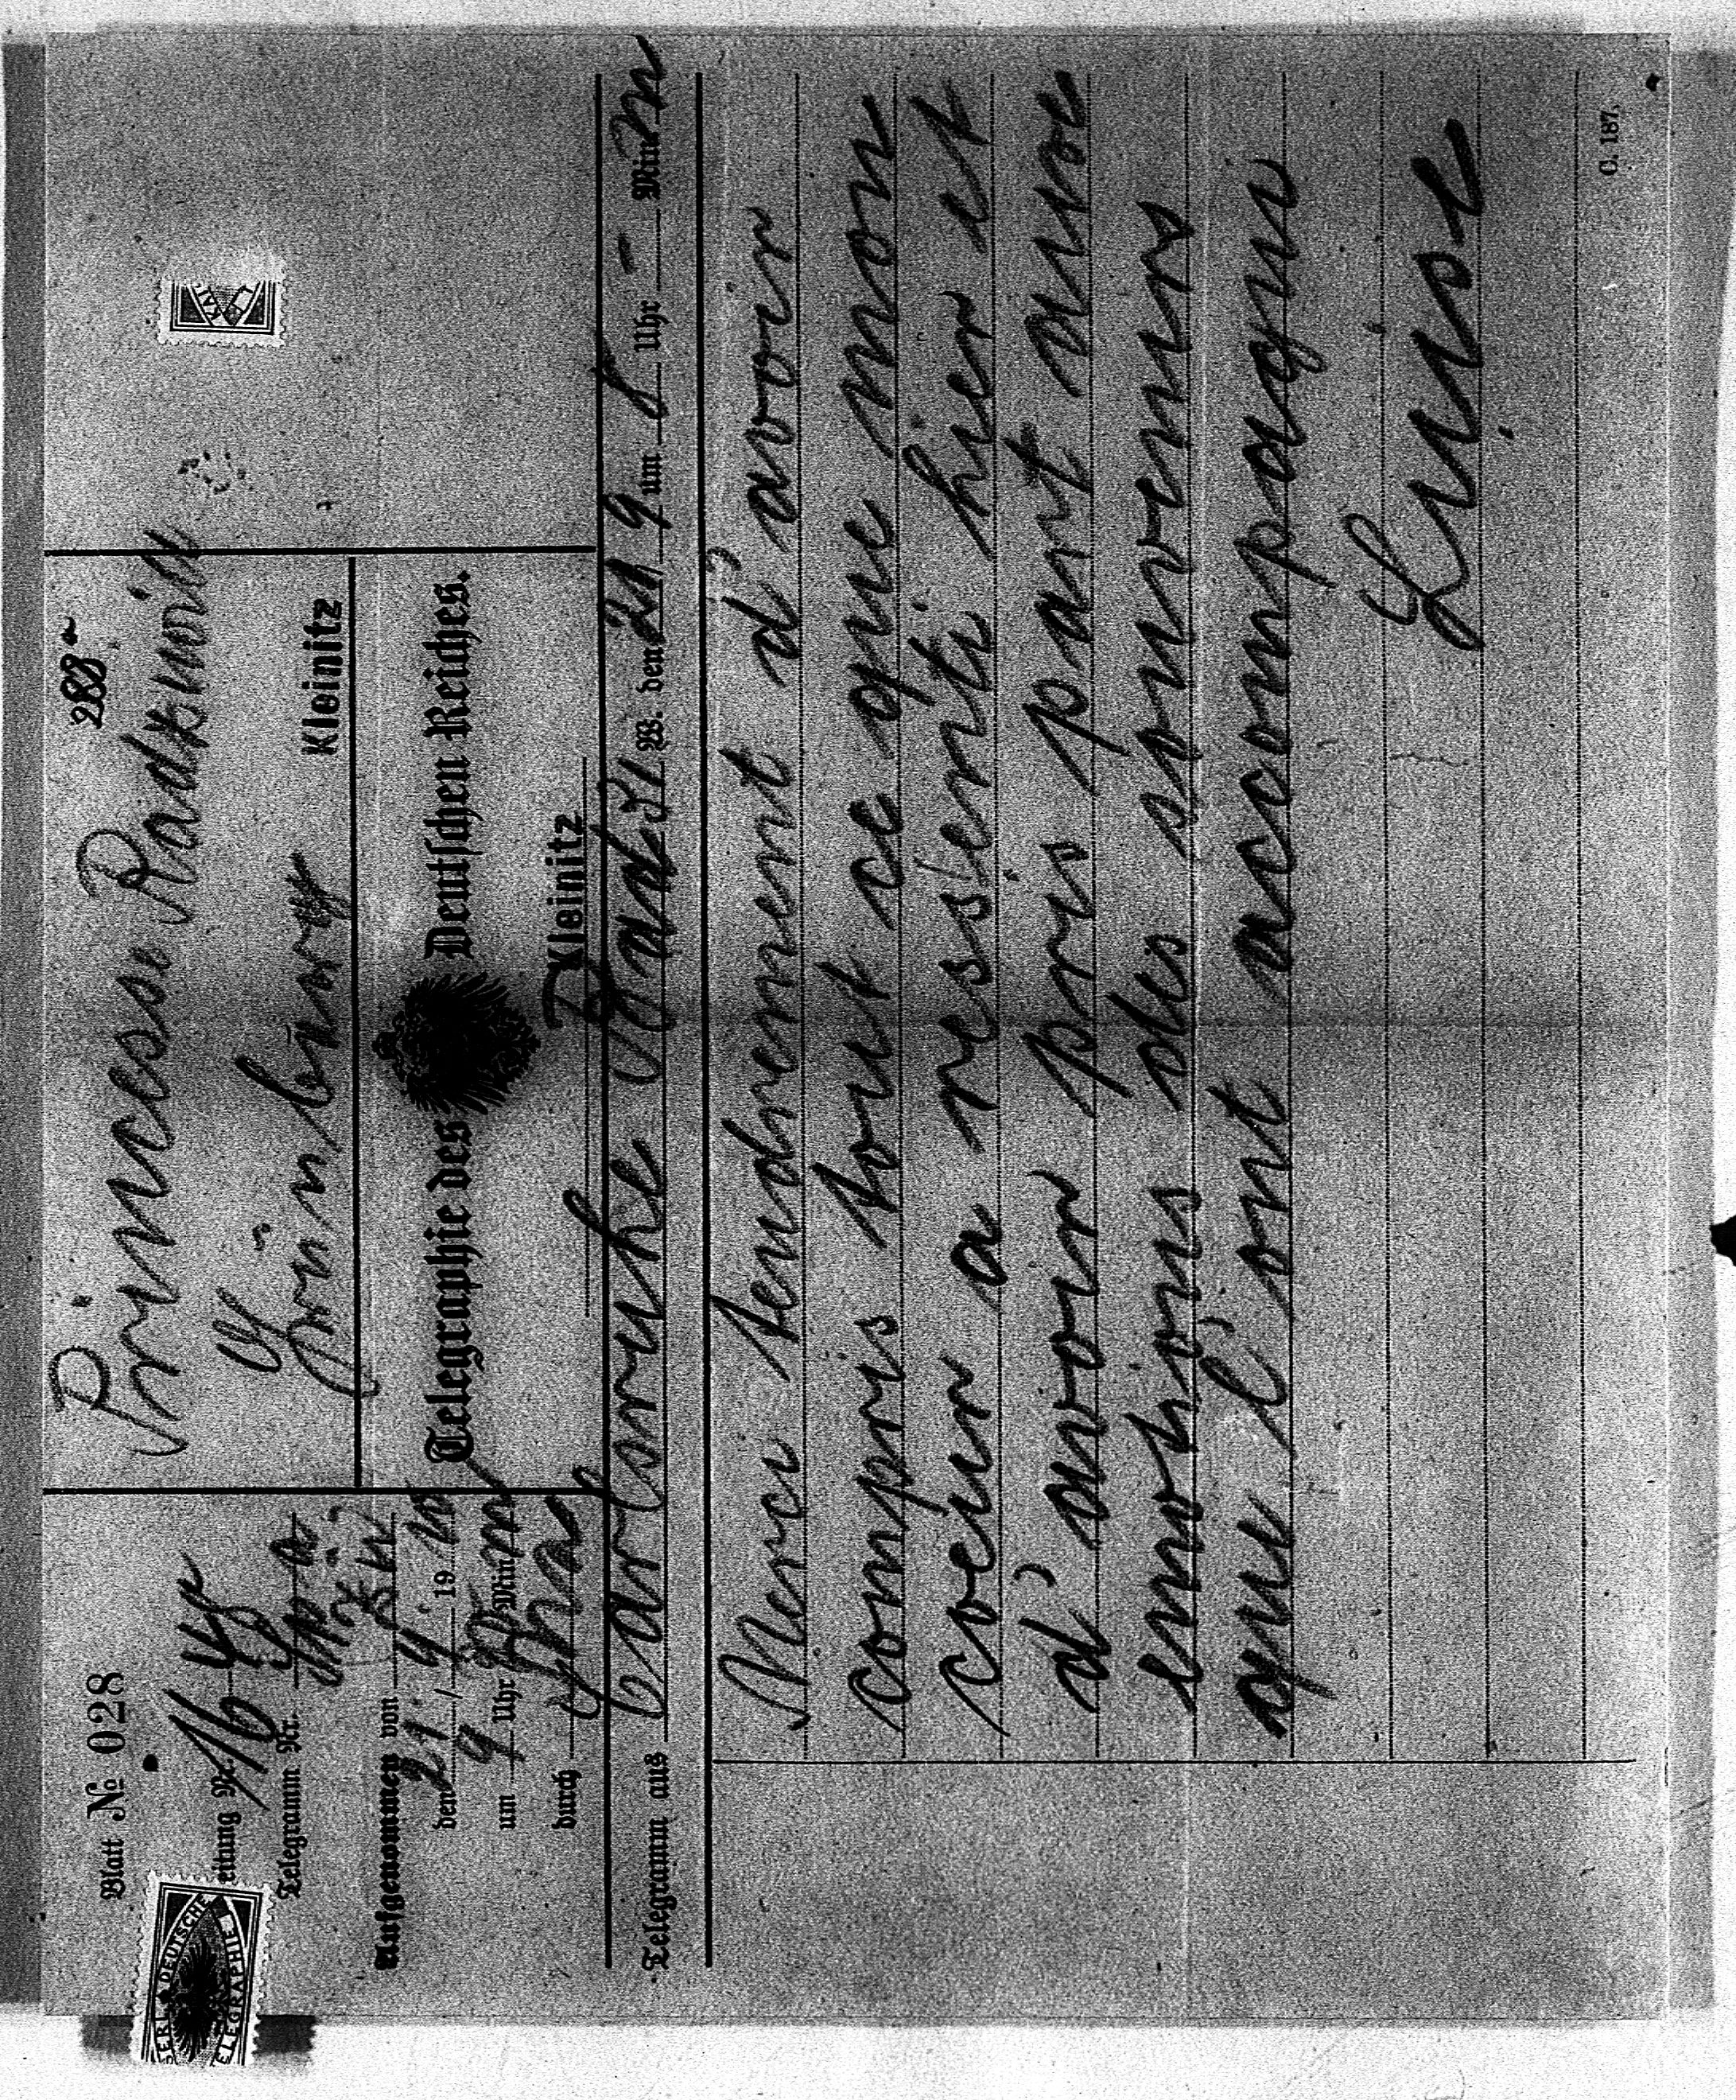 288a
Blatt № 028
Leitung Nr. 16
Telegramm Nr.
Aufgenommen von
den 21/9 19
um 9 Uhr Min
durch
Princesse Radziwill
Grünberg
Kleinitz
Telegraphie des Deutschen Reiches.
Kleinitz
Telegramm aus Carlsruhe Baden W. den 21 9 um 8 Uhr - Min
Merci tendrement d'avoir
compris tout ce que mon
coeur a ressenti hier et
d'avoir pris part aux
emotions des souvenirs
que l'ont accompagne
Luise
C. 187.
DEUTSCHE
TELEGRAPHIE